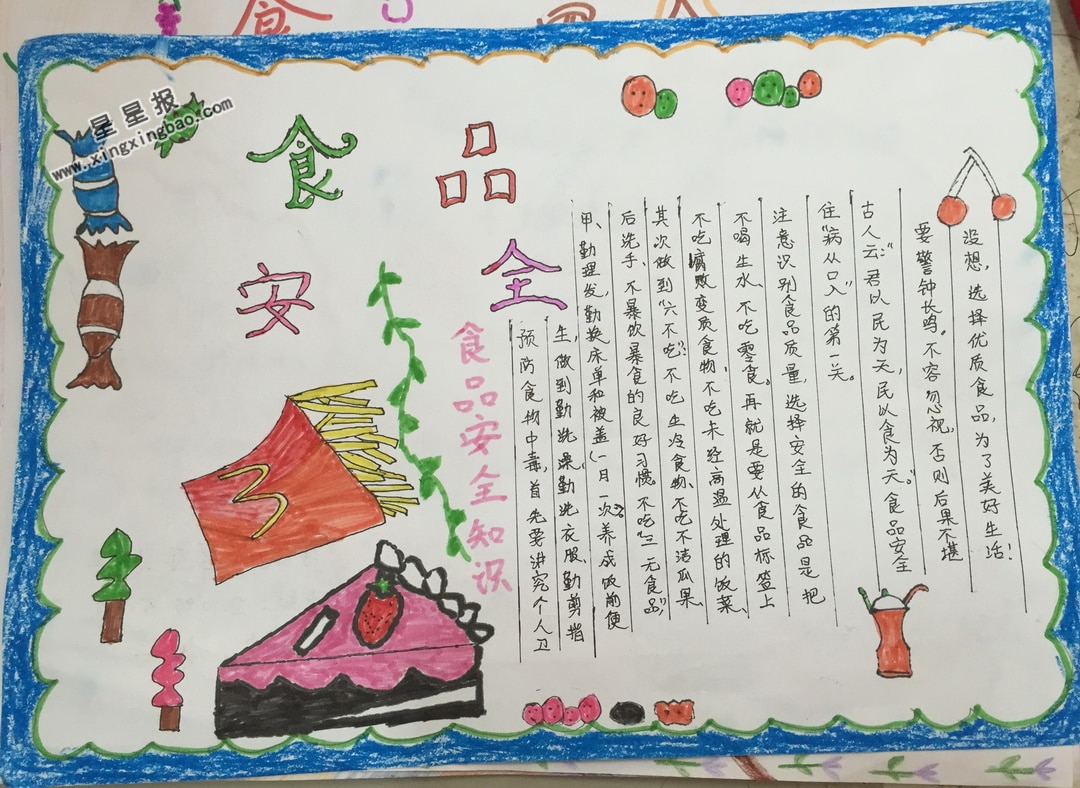 食
星星报
www.xingxingbao.com
食品
安全
食品安全知识
预防食物中毒,首先要讲究个人卫
生,做到勤洗澡、勤洗衣服、勤剪指
甲、勤理发,勤换床单和被盖(一月一次)养成饭前便
后洗手、不暴饮暴食的良好习惯。不吃“三无食品”,
其次做到“六不吃”:不吃生冷食物、不吃不洁瓜果、
不吃腐败变质食物,不吃未经高温处理的饭菜、
不喝生水、不吃零食。再就是要从食品标签上
注意识别食品质量,选择安全的食品是把
住“病从口入”的第一关。
古人云:“君以民为天,民以食为天。”食品安全
要警钟长鸣。不容忽视,否则后果不堪
没想,选择优质食品,为了美好生活!